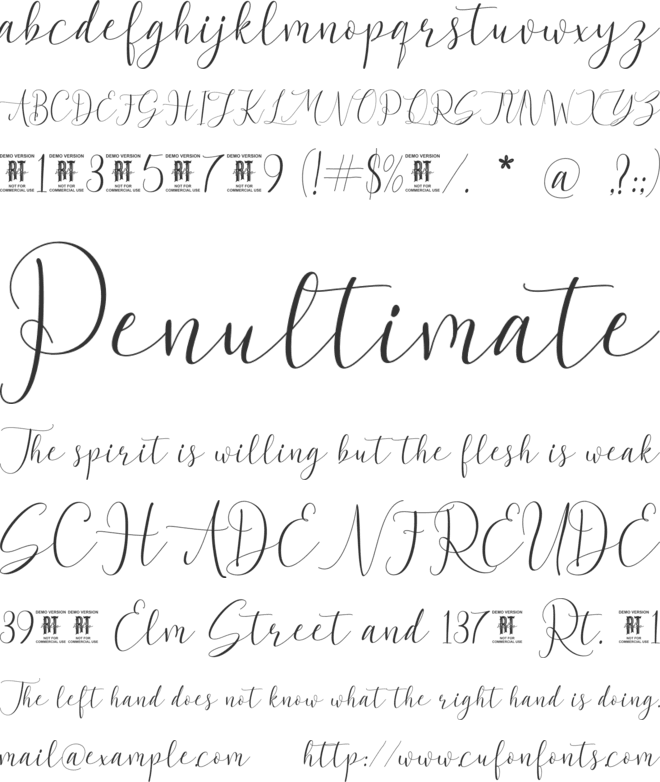 abcdefghijklmnopqrstuvwxyz
ABCDEFGHIJKLMNOPQRSTUVWXYZ
DEMO VERSION RT NOT FOR COMMERCIAL USE 1 DEMO VERSION RT NOT FOR COMMERCIAL USE 3 DEMO VERSION RT NOT FOR COMMERCIAL USE 5 DEMO VERSION RT NOT FOR COMMERCIAL USE 7 DEMO VERSION RT NOT FOR COMMERCIAL USE 9 (!#$% DEMO VERSION RT NOT FOR COMMERCIAL USE /. * @ ,?:;)
Penultimate
The spirit is willing but the flesh is weak
SCHADENFREUDE
39 DEMO VERSION RT NOT FOR COMMERCIAL USE DEMO VERSION RT NOT FOR COMMERCIAL USE Elm Street and 137 DEMO VERSION RT NOT FOR COMMERCIAL USE Rt. DEMO VERSION RT NOT FOR COMMERCIAL USE 1
The left hand does not know what the right hand is doing.
mail@example.com http://www.cufonfonts.com